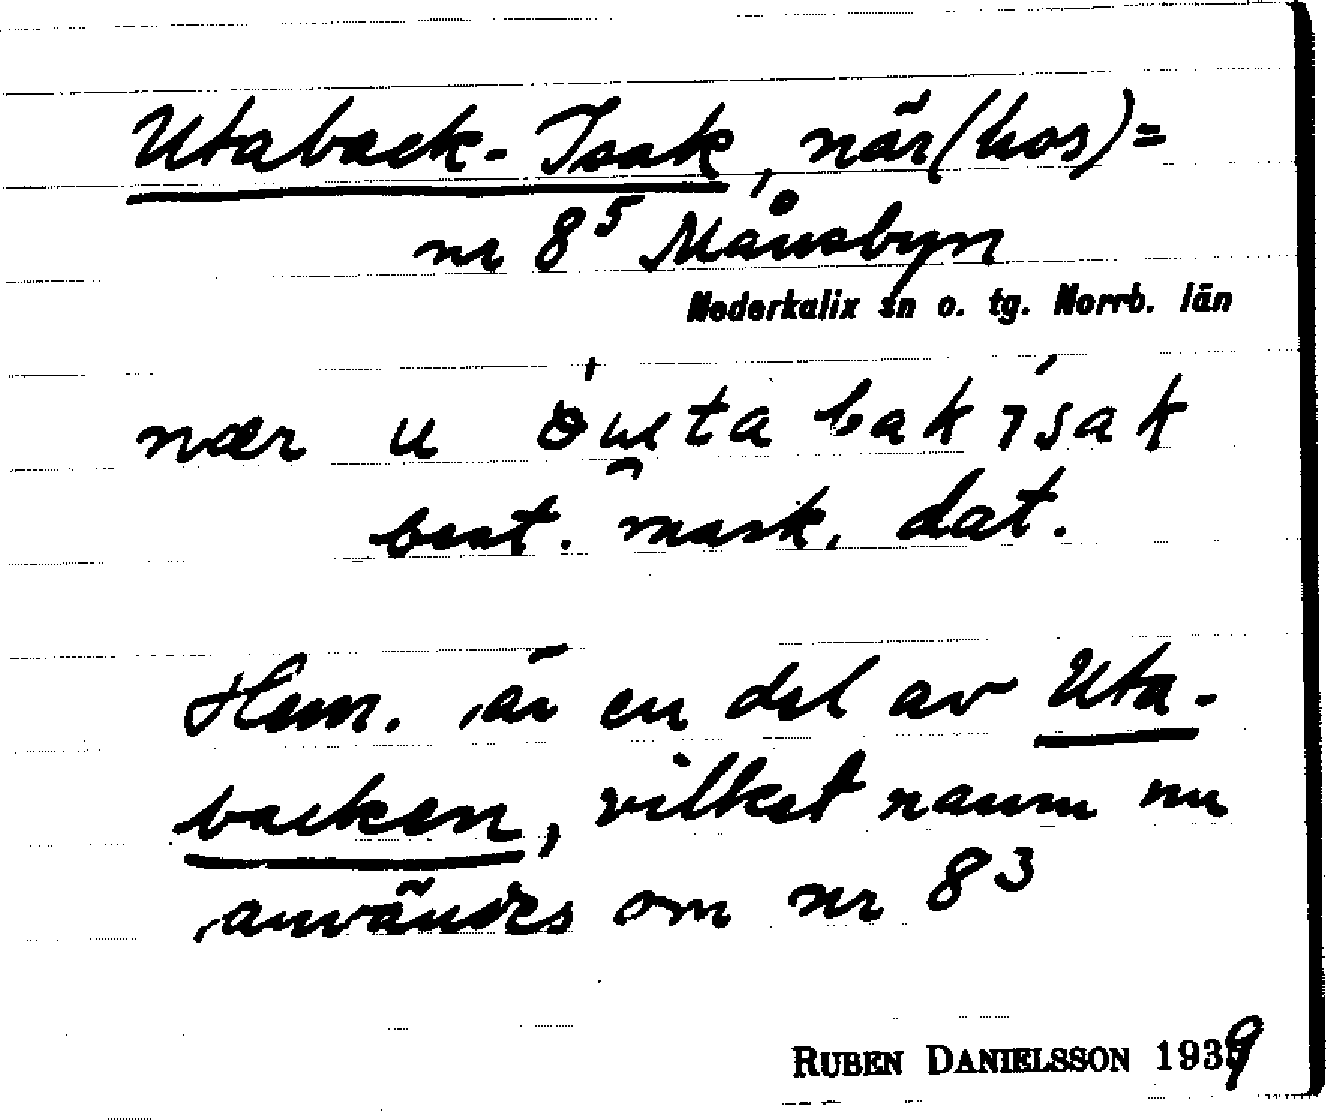 Utaback-Isak, när (hos) =
nr 8⁵ Månsbyn
Nederkalix sn o. tg. Norrb. län
nær u
bak ısak
best. mask. dat.
Hem. är en del av Uta-
backen, vilket namn nu
användes om nr 8³
RUBEN DANIELSSON 1939